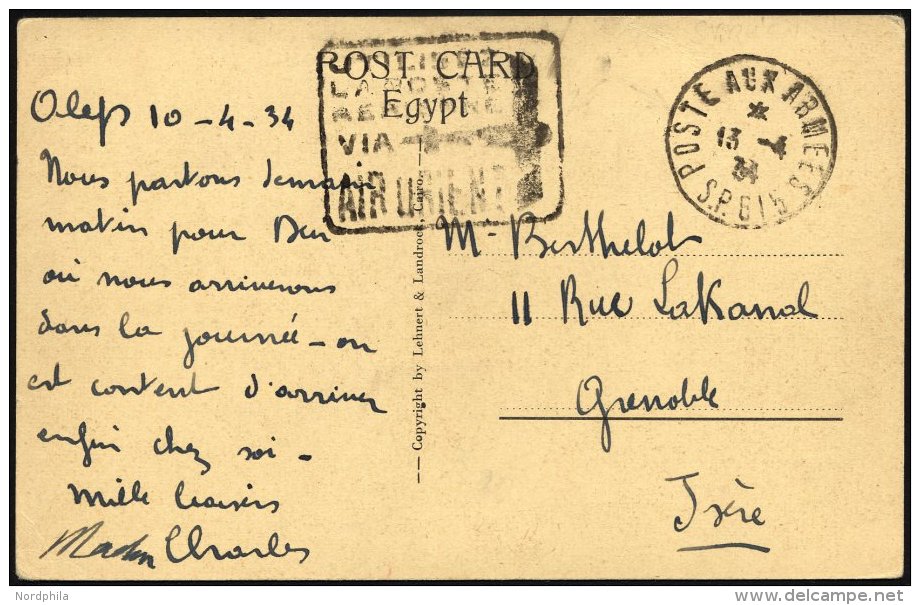 POST CARD
Egypt
UTILISEZ
LA POSTE
AERIENNE
VIA
AIR ORIENT
POSTE AUX ARMEES
13 -4
34
S.P. 615
Alep 10-4-34
Nous partons demain
matin pour
où nous arriverons
dans la journée - on
est content d'arriver
enfin chez soi -
Mille baisers
Charles
— Copyright by Lehnert & Landrock, Cairo. —
Mr Berthelot
11 Rue Lakanal
Grenoble
Isère
Nordphila
delcampe.net